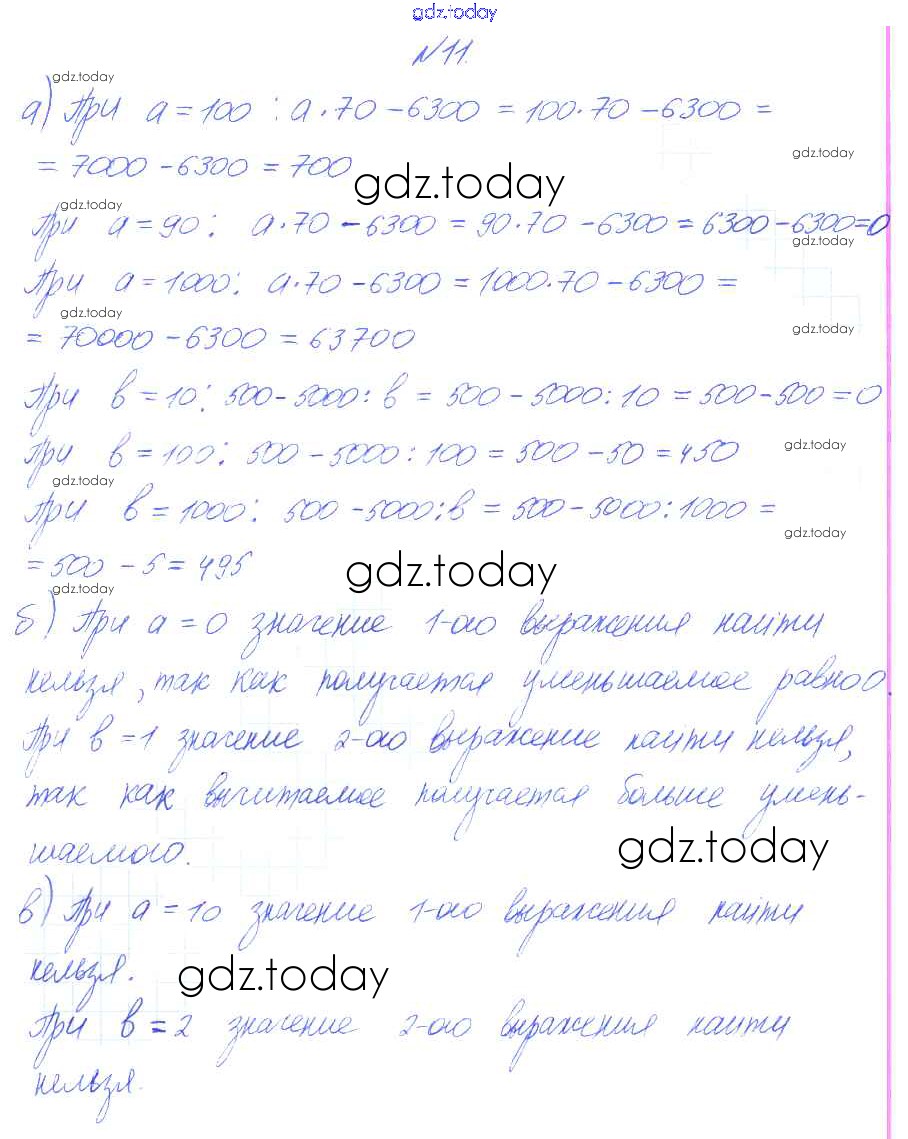 gdz.today
№11.
gdz.today
а) При а = 100 : а · 70 – 6300 = 100 · 70 – 6300 =
gdz.today
= 7000 – 6300 = 700
gdz.today
gdz.today
При а = 90 : а · 70 – 6300 = 90 · 70 – 6300 = 6300 – 6300 = 0
gdz.today
При а = 1000 : а · 70 – 6300 = 1000 · 70 – 6300 =
gdz.today
gdz.today
= 70000 – 6300 = 63700
При в = 10 : 500 – 5000 : в = 500 – 5000 : 10 = 500 – 500 = 0
gdz.today
При в = 100 : 500 – 5000 : 100 = 500 – 50 = 450
gdz.today
При в = 1000 : 500 – 5000 : в = 500 – 5000 : 1000 =
gdz.today
= 500 – 5 = 495
gdz.today
gdz.today
б) При а = 0 значение 1-ого выражения найти
нельзя, так как получается уменьшаемое равно 0.
При в = 1 значение 2-ого выражение найти нельзя,
так как вычитаемое получается больше умень-
шаемого.
gdz.today
в) При а = 10 значение 1-ого выражения найти
нельзя.
gdz.today
При в = 2 значение 2-ого выражения найти
нельзя.